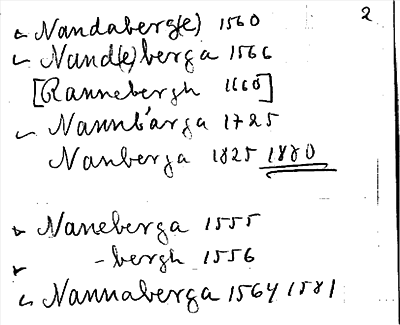 2
Nandaberg(e) 1560
Nand(e)berga 1566
[Rannebergh 1660]
Nannb'arga 1725
Nanberga 1825 1880
Naneberga 1555
-bergh 1556
Nannaberga 1564 1581